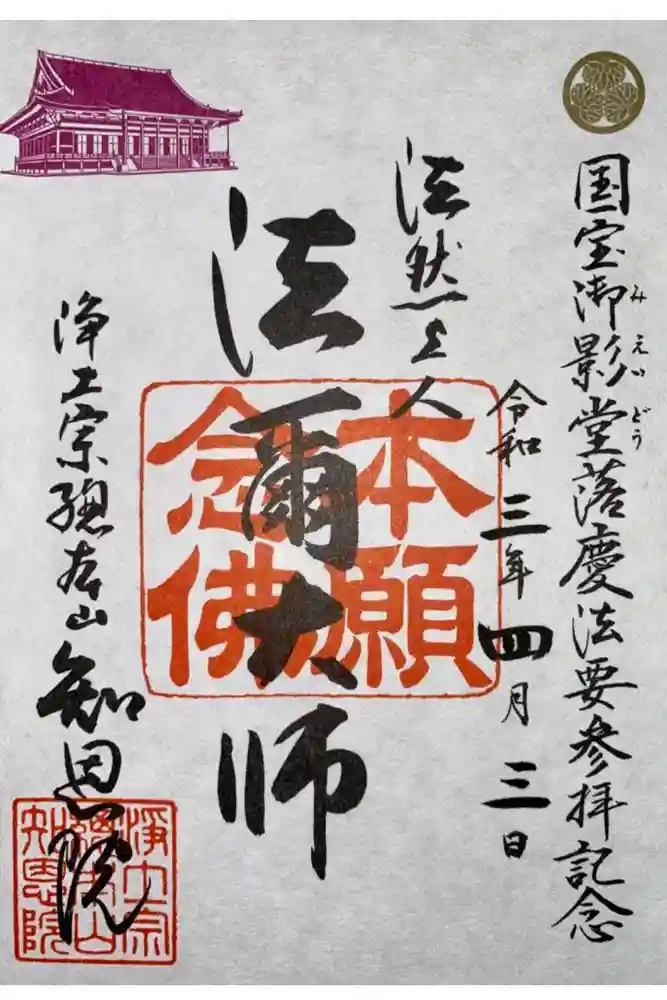 国宝御影堂落慶法要参拝記念
みえいどう
令和三年四月三日
法然上人
法爾大師
本願
念佛
浄土宗總本山知恩院
浄土宗
總本山
知恩院